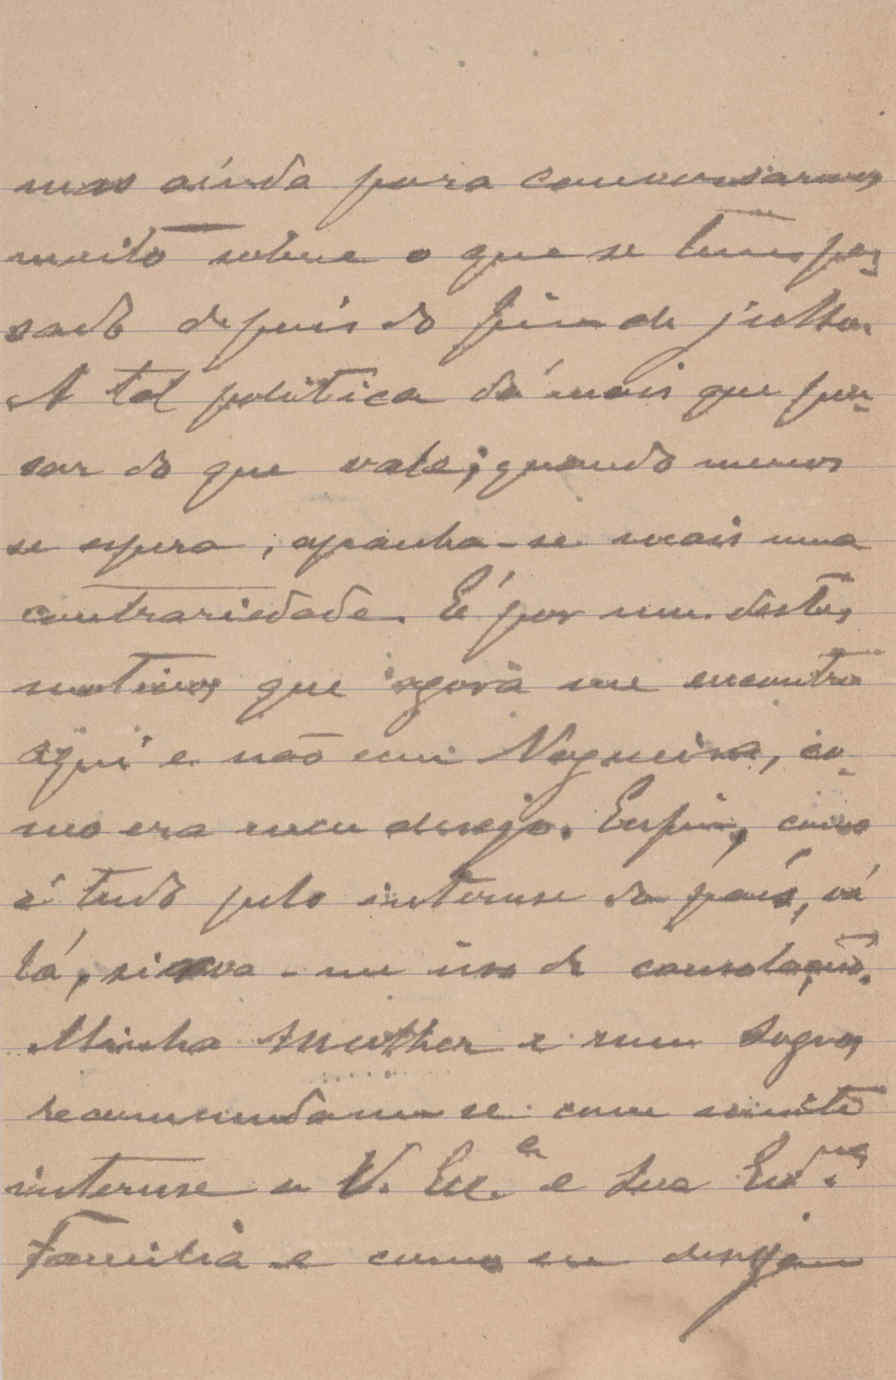 mas ainda para conversarmos
muito sobre o que se tem pas-
sado depois do fim de julho.
A tal politica dá mais que pen-
sar do que vale; quando menos
se espera, apanha-se mais uma
contrariedade. É por um destes
motivos que agora me encontro
aqui e não em Nogueira, co-
mo era meu desejo. Enfim, como
é tudo pelo interesse do país, vá
lá, sirva-me isso de consolação.
Minha Mulher e meu Sogro,
recommendam-se com muito
interesse a V. Ex.ª e Sua Ex.ma
Familia e como eu desejam